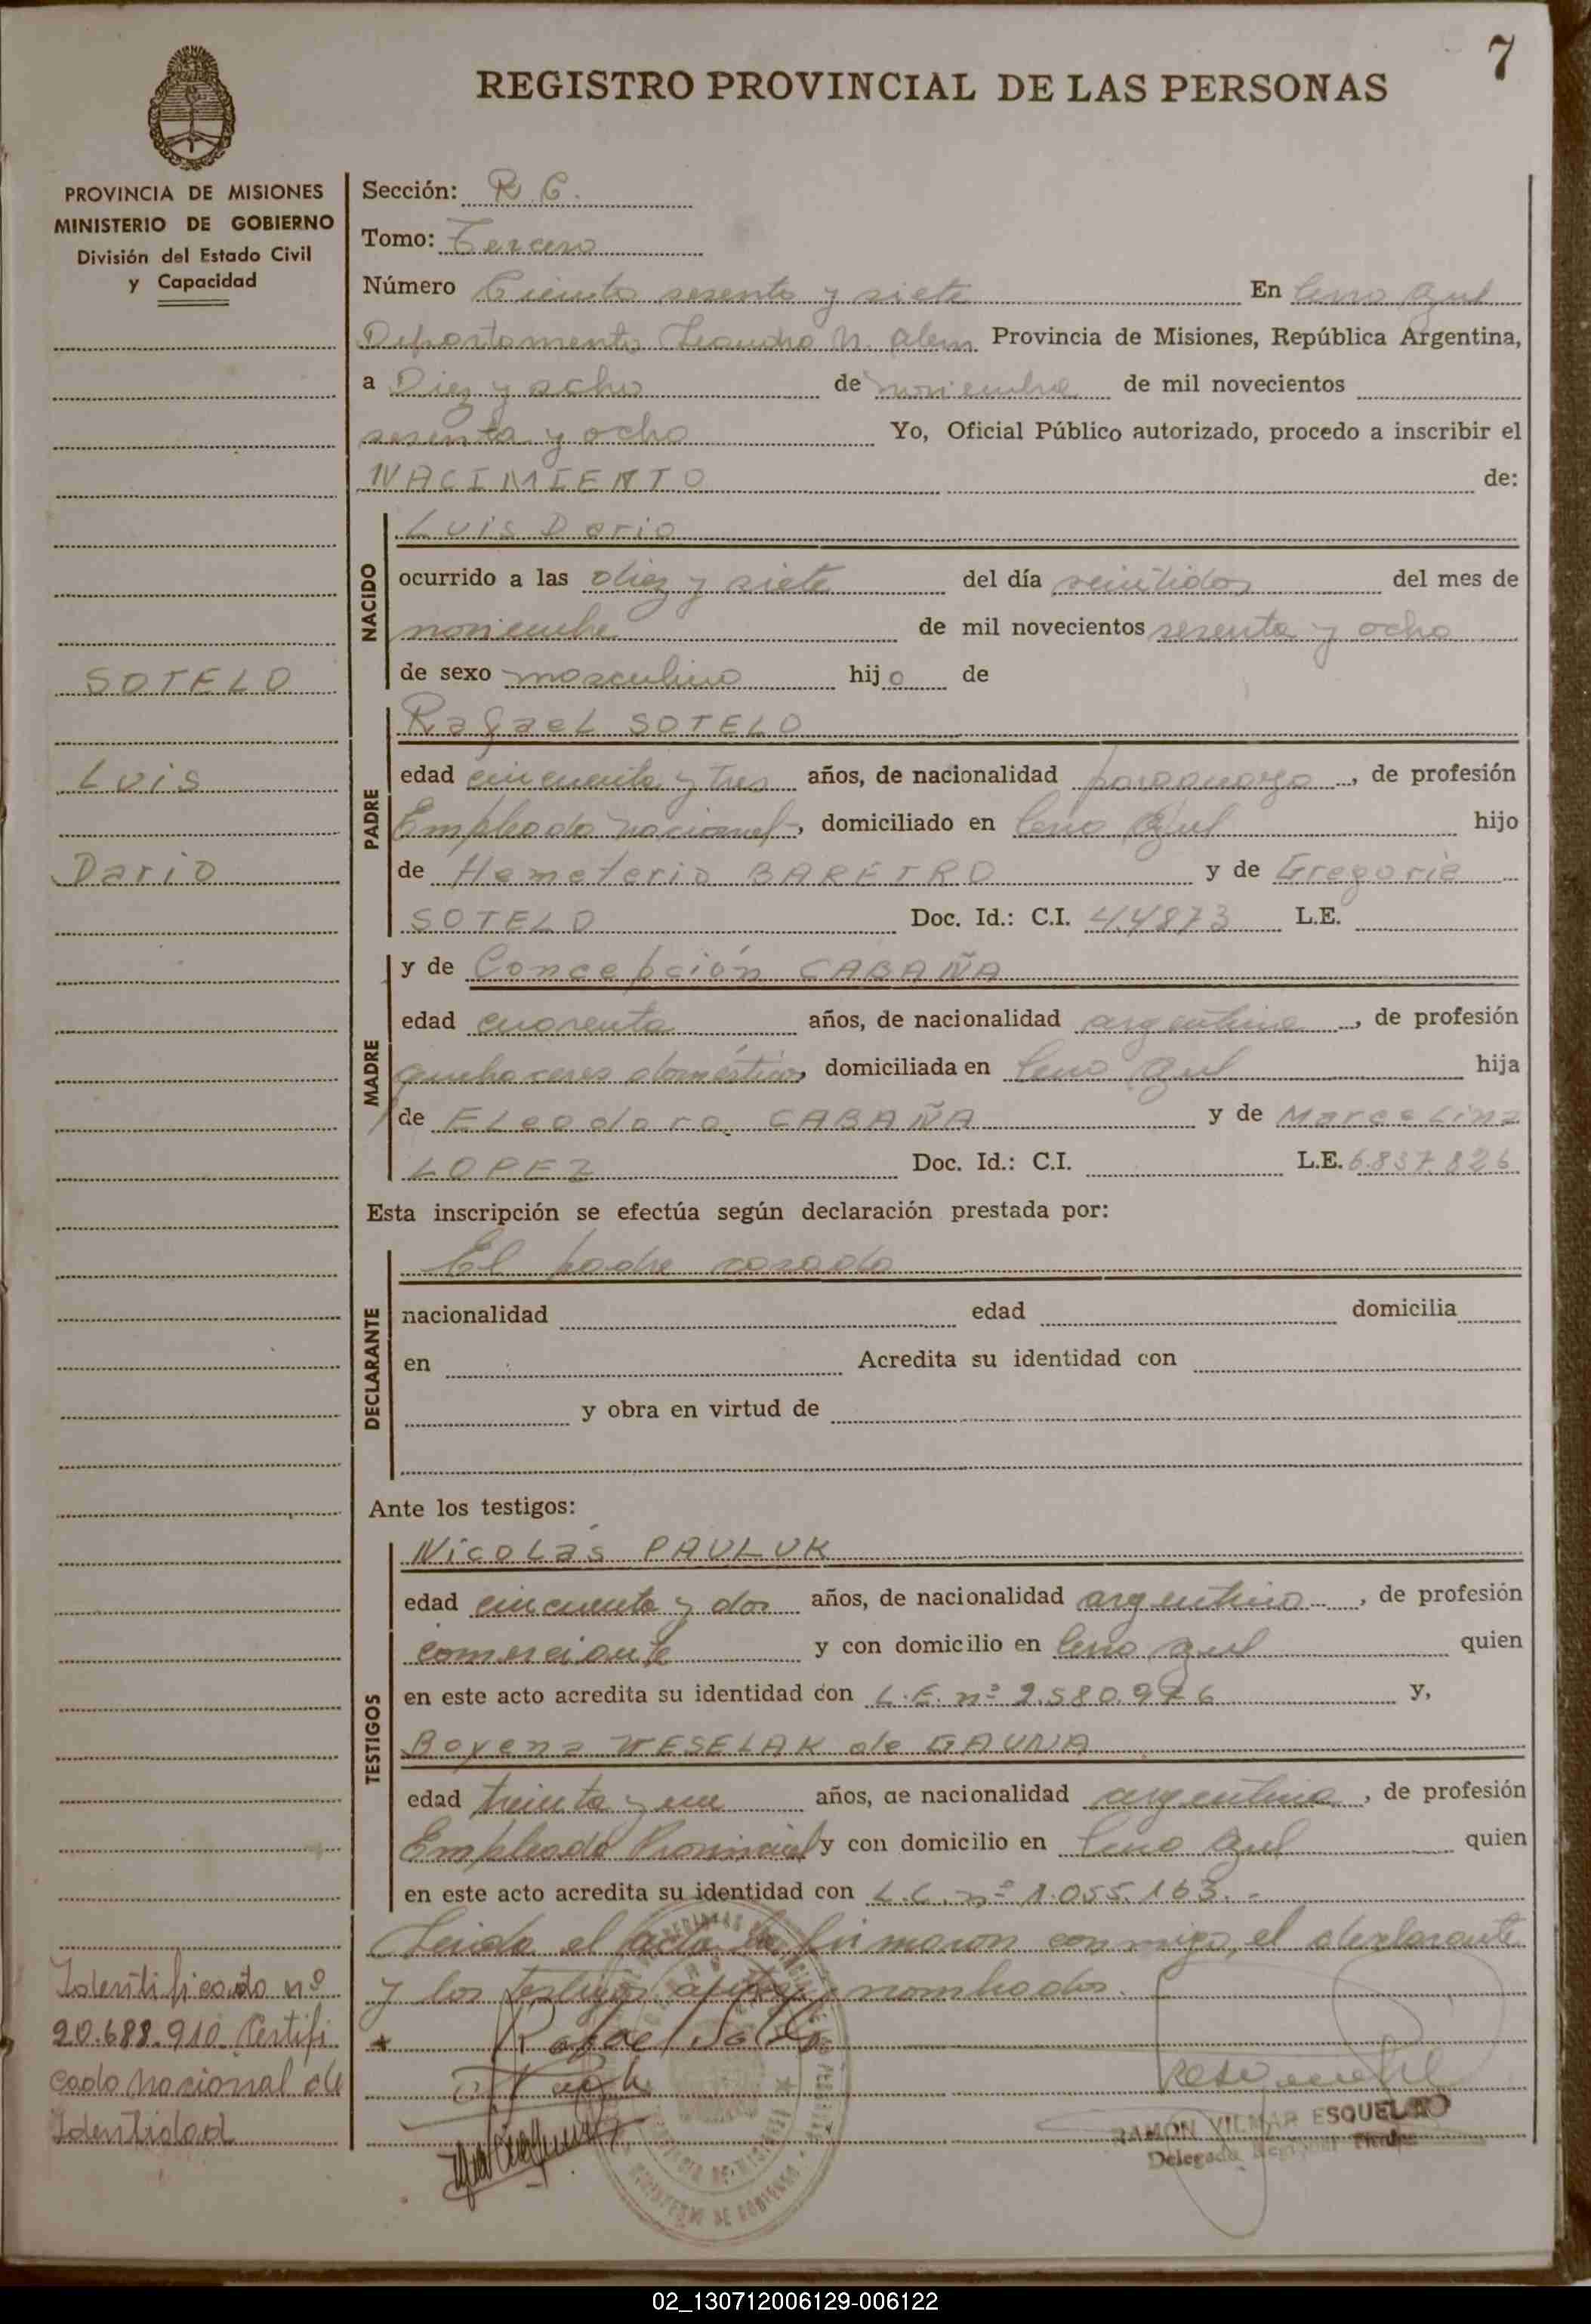 7
REGISTRO PROVINCIAL DE LAS PERSONAS
PROVINCIA DE MISIONES
MINISTERIO DE GOBIERNO
División del Estado Civil
y Capacidad
SOTELO
Luis
Dario
Identificado nº
20.688.910 Certifi
cado nacional de
Identidad
Sección: R.C.
Tomo: Tercero
Número Ciento sesenta y siete En Cerro Azul
Departamento Leandro N. Alem Provincia de Misiones, República Argentina,
a Diez y ocho de noviembre de mil novecientos
sesenta y ocho Yo, Oficial Público autorizado, procedo a inscribir el
NACIMIENTO de:
NACIDO
Luis Dario
ocurrido a las diez y siete del día veintidos del mes de
noviembre de mil novecientos sesenta y ocho
de sexo masculino hijo de
PADRE
Rafael SOTELO
edad cincuenta y tres años, de nacionalidad paraguaya, de profesión
Empleado nacional, domiciliado en Cerro Azul hijo
de Hemeterio BAREIRO y de Gregoria
SOTELO Doc. Id.: C.I. 44873 L.E.
MADRE
y de Concepción CABAÑA
edad cuarenta años, de nacionalidad argentina, de profesión
quehaceres domésticos, domiciliada en Cerro Azul hija
de Eleodoro CABAÑA y de Marcelina
LOPEZ Doc. Id.: C.I. L.E. 6.837.826
Esta inscripción se efectúa según declaración prestada por:
DECLARANTE
El padre casado
nacionalidad edad domicilia
en Acredita su identidad con
y obra en virtud de
Ante los testigos:
TESTIGOS
Nicolás PAULUK
edad cincuenta y dos años, de nacionalidad argentino, de profesión
comerciante y con domicilio en Cerro Azul quien
en este acto acredita su identidad con L.E. nº 2.580.976 y,
Boyena WESELAK de GAUNA
edad treinta y un años, de nacionalidad argentina, de profesión
Empleada Provincial y con domicilio en Cerro Azul quien
en este acto acredita su identidad con L.C. nº 1.055.163.-
Leida el acta la firmaron conmigo, el declarante
y los testigos nombrados.
Rafael Sotelo
RAMON VILMAR ESQUEL
Delegado Titular
02_130712006129-006122